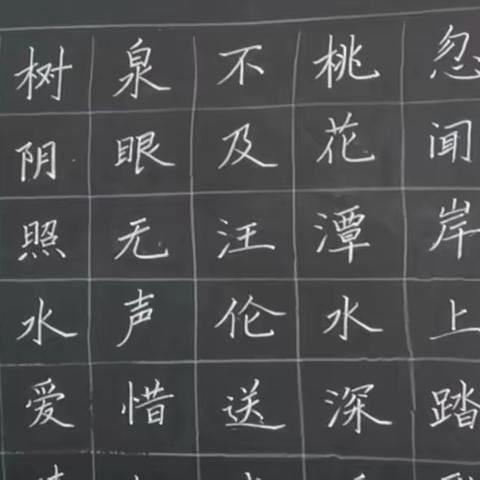 忽闻岸上踏
桃花潭水深
不及汪伦送
泉眼无声惜
树阴照水爱